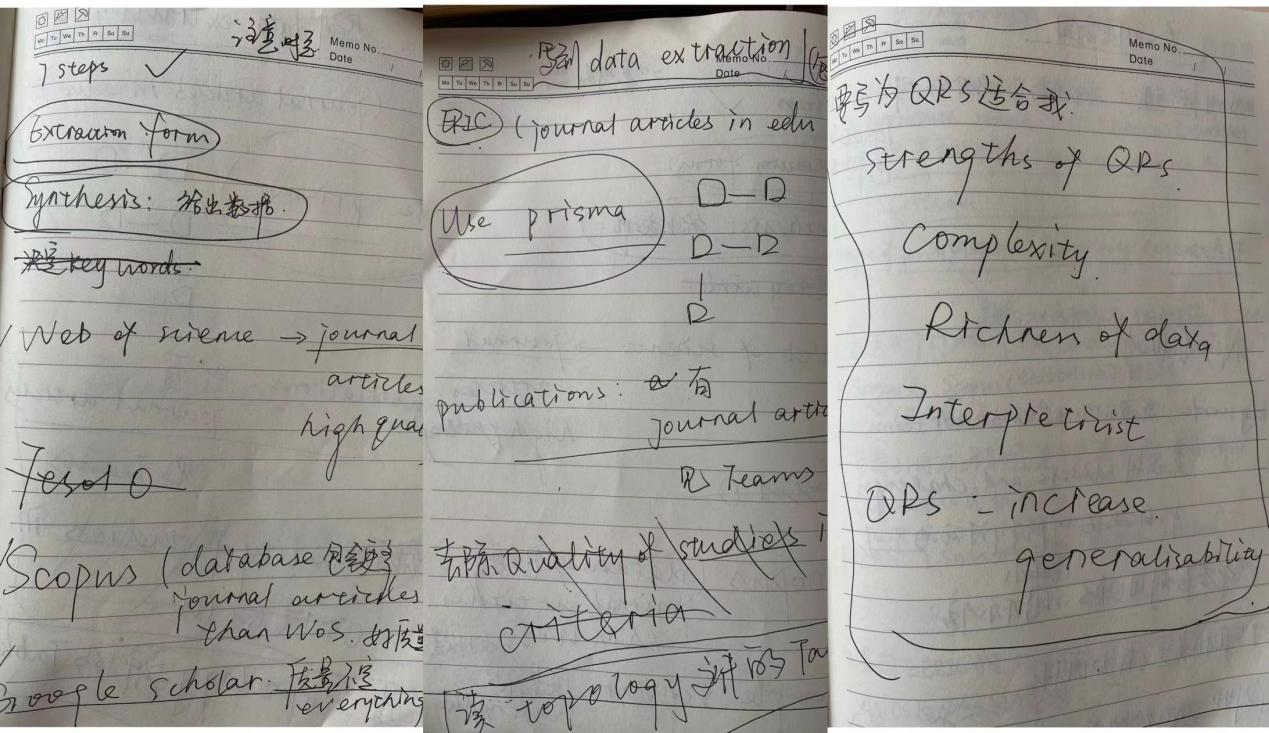 Mo Tu We Th Fr Sa Su
注意时态
Memo No.
Date
7 steps ✓
Extraction form
Synthesis: 给出数据.
key words.
Web of science → journal
articles
high qua
Tesol Q
Scopus (database 包含更多
journal articles
than WoS. 好质量
Google scholar. 质量不定
everything
写到 data extraction
Memo No.
Date
Mo Tu We Th Fr Sa Su
ERIC (journal articles in edu
Use prisma
D—D
D—D
D
publications: 有
journal artic
Teams
去除 Quality of studies
criteria
读 topology
Fr Sa Su
Memo No.
Date
写为 QRS 适合我.
strengths of QRs.
Complexity.
Richness of data
Interpretivist
QRs - increase
generalisability